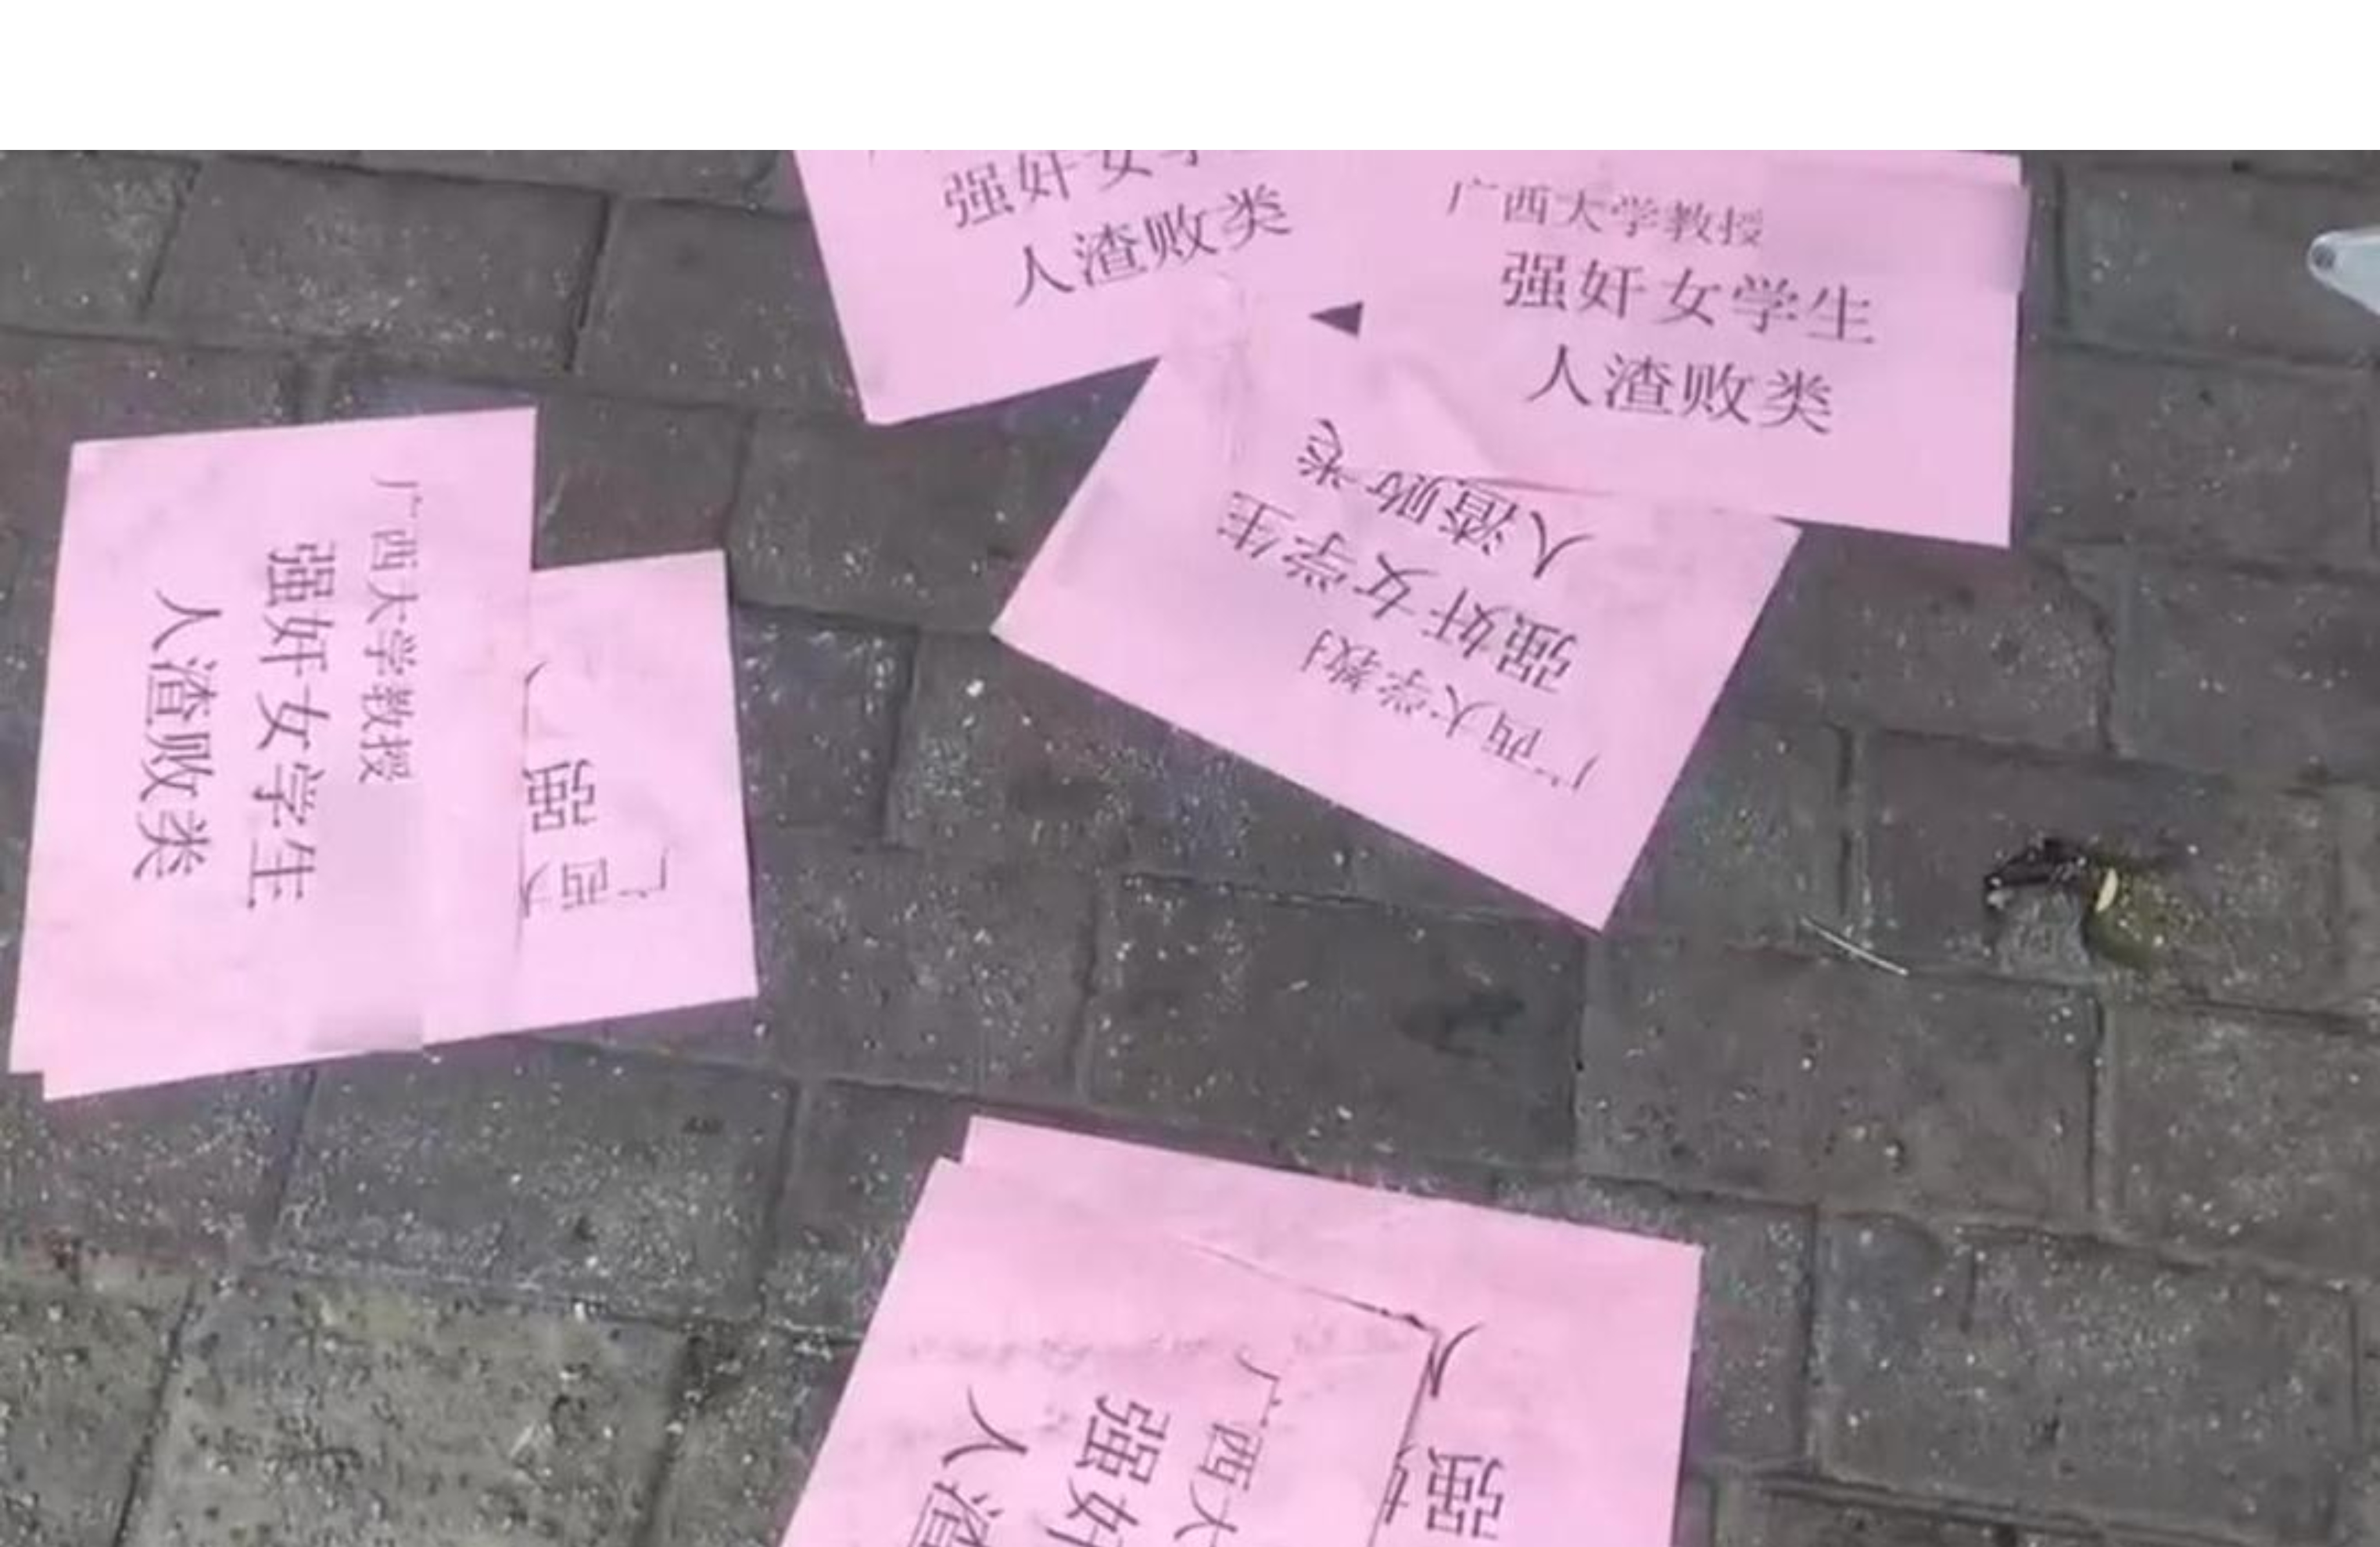 强奸女学
人渣败类
广西大学教授
强奸女学生
人渣败类
广西大学教授
强奸女学生
人渣败类
强
广西大
广西大学教
强奸女学生
人渣败类
广西大
强奸
人渣
人
强